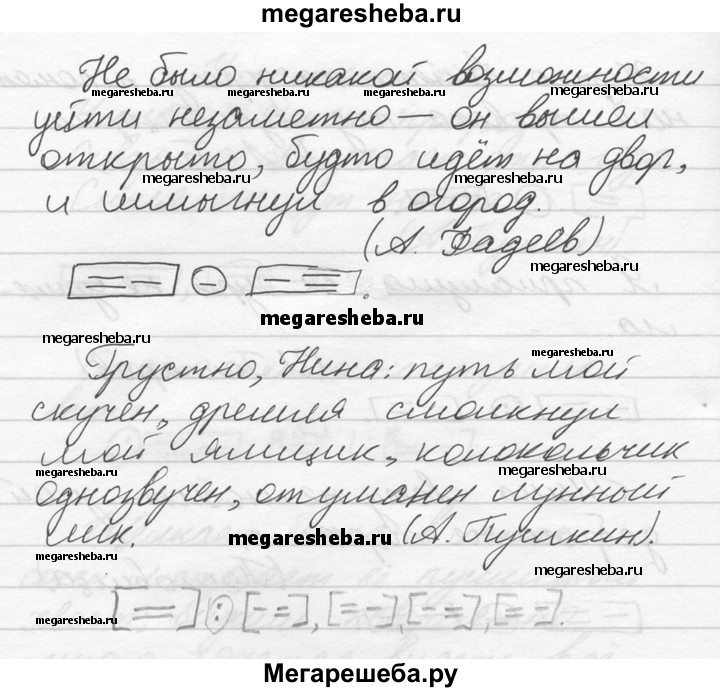 megaresheba.ru
Не было никакой возможности
megaresheba.ru megaresheba.ru megaresheba.ru megaresheba.ru
уйти незаметно — он вышел
открыто, будто идёт на двор,
megaresheba.ru megaresheba.ru
и шмыгнул в огород.
(А. Фадеев)
megaresheba.ru
[= –] (–) [– =].
megaresheba.ru
megaresheba.ru
Грустно, Нина: путь мой
megaresheba.ru
скучен, дремля смолкнул
мой ямщик, колокольчик
megaresheba.ru megaresheba.ru
однозвучен, отуманен лунный
лик. megaresheba.ru (А. Пушкин).
megaresheba.ru
megaresheba.ru
[=] : [– =], [= –], [– =], [= –].
megaresheba.ru
Мегарешеба.ру